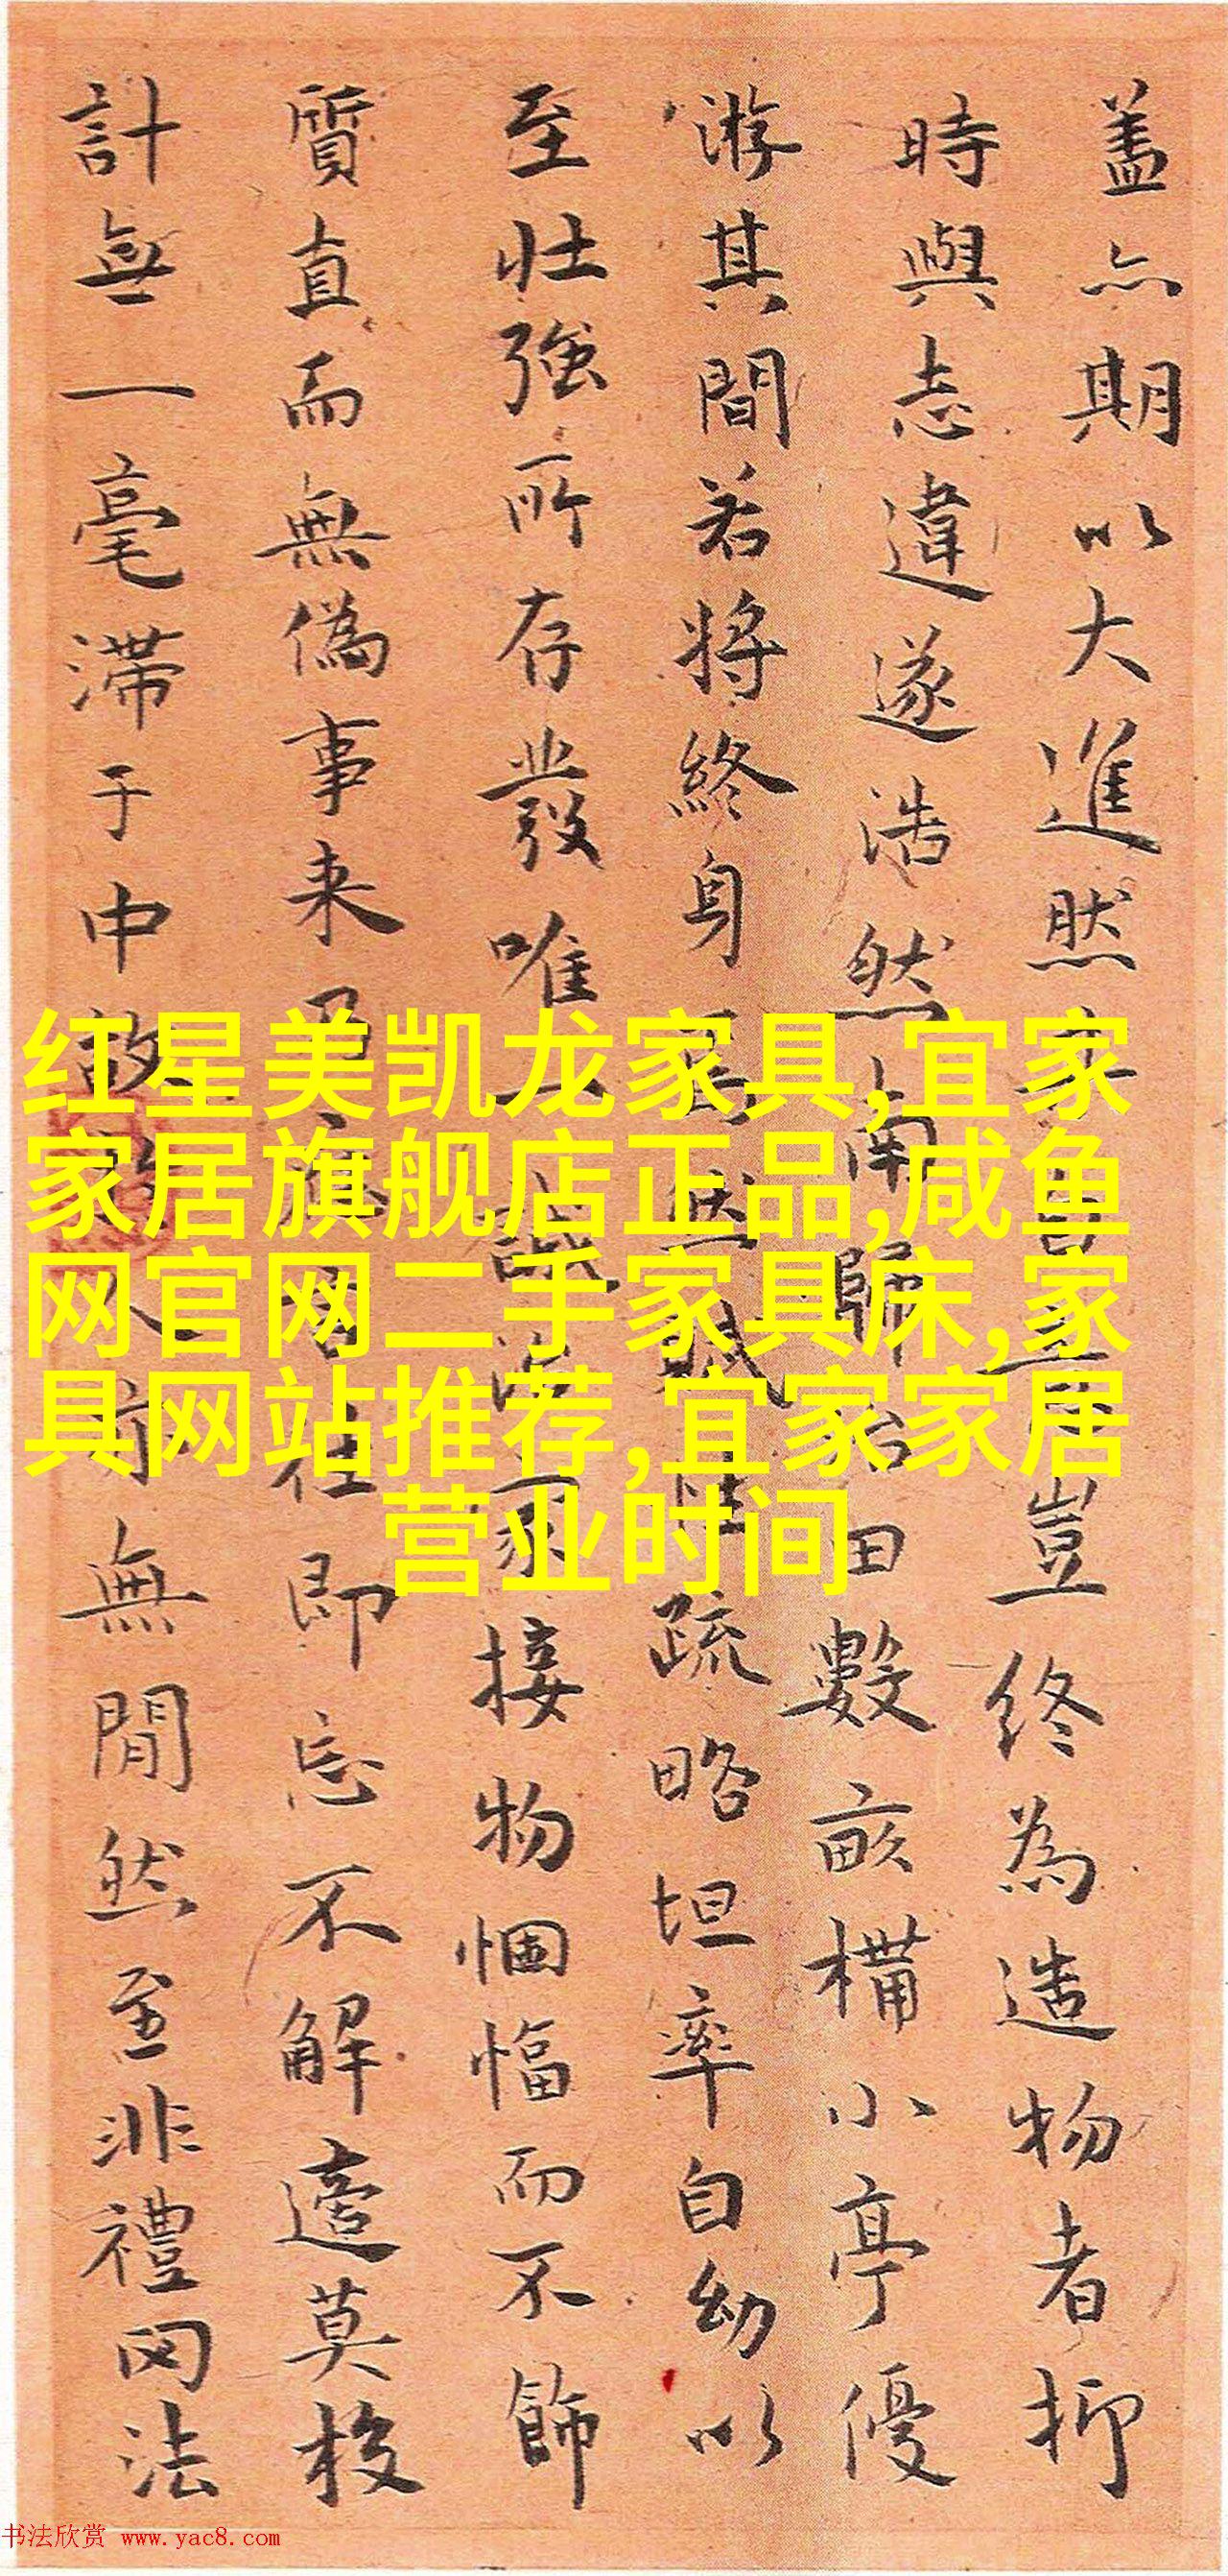 蓋亦期以大進然
豈終為造物者抑
時與志違遂浩然南歸治田數畝構小亭優
游其間若將終身焉然
疏略坦率自幼以
至壯強所存發唯一誠
接物悃愊而不飾
質直而無偽事来
即忘不解邊莫校
計無一毫滞于中故
無閒然至非禮罔法
红星美凯龙家具,宜家
家居旗舰店正品,咸鱼
网官网二手家具床,家
具网站推荐,宜家家居
营业时间
书法欣赏 www.yac8.com